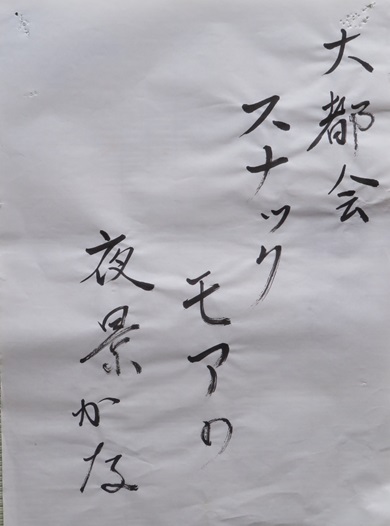 大都会
スナック
モアの
夜景かな